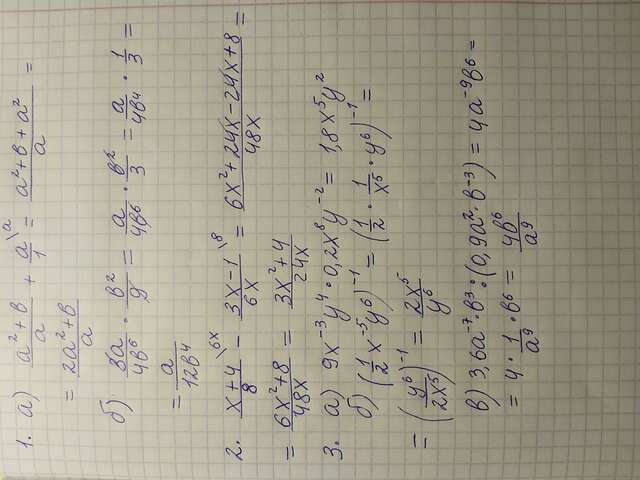 1. а) (a²+b)/a + a/1 \a = (a²+b+a²)/a =
= (2a²+b)/a
б) 3a/4b⁶ · b²/9 = a/4b⁶ · b²/3 = a/4b⁴ · 1/3 =
= a/12b⁴
2. (x+4)/8 \6x − (3x−1)/6x \8 = (6x²+24x−24x+8)/48x =
= (6x²+8)/48x = (3x²+4)/24x
3. а) 9x⁻³y⁴ · 0,2x⁸y⁻² = 1,8x⁵y²
б) (1/2 x⁻⁵y⁶)⁻¹ = (1/2 · 1/x⁵ · y⁶)⁻¹ =
= (y⁶/2x⁵)⁻¹ = 2x⁵/y⁶
в) 3,6a⁻⁷·b³ : (0,9a²·b⁻³) = 4a⁻⁹b⁶ =
= 4 · 1/a⁹ · b⁶ = 4b⁶/a⁹